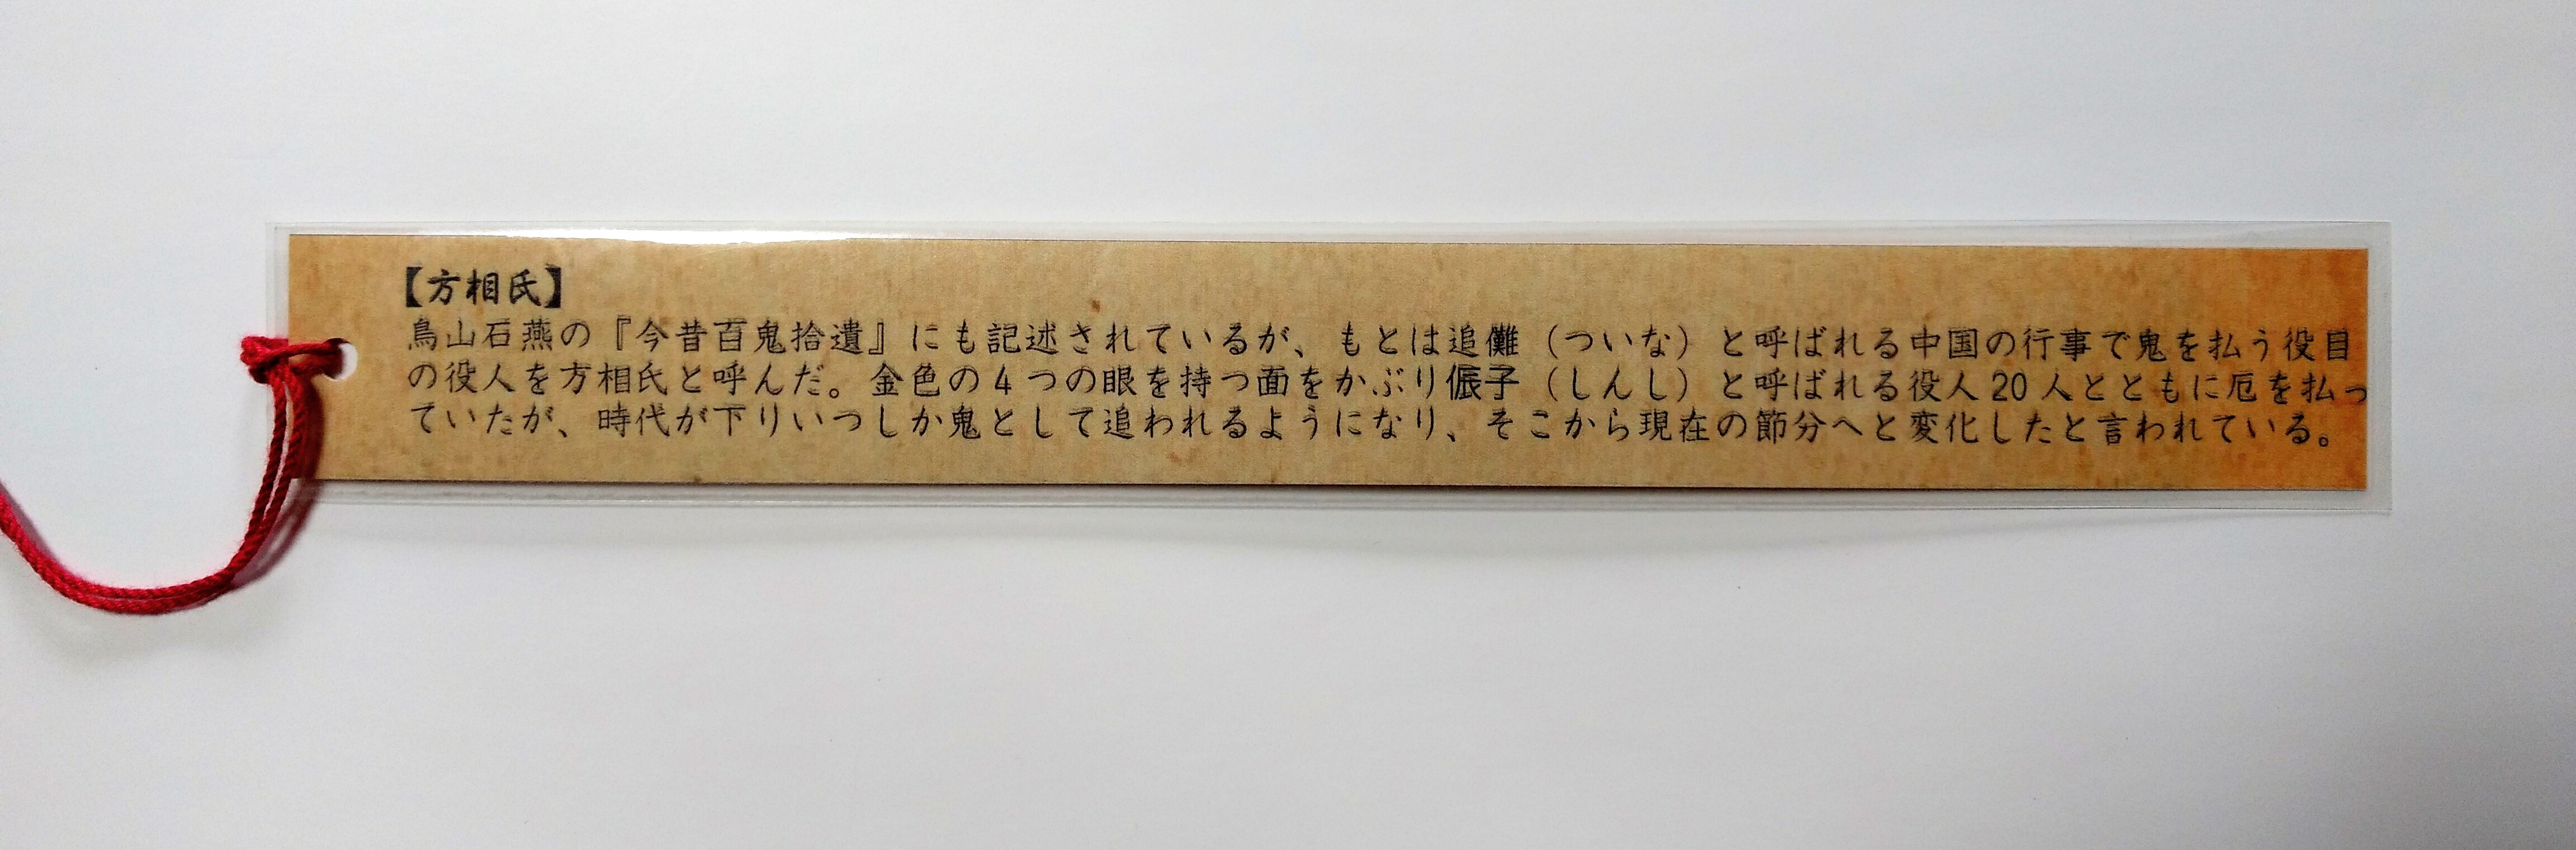 【方相氏】
鳥山石燕の『今昔百鬼拾遺』にも記述されているが、もとは追儺（ついな）と呼ばれる中国の行事で鬼を払う役目
の役人を方相氏と呼んだ。金色の4つの眼を持つ面をかぶり侲子（しんし）と呼ばれる役人20人とともに厄を払っ
ていたが、時代が下りいつしか鬼として追われるようになり、そこから現在の節分へと変化したと言われている。